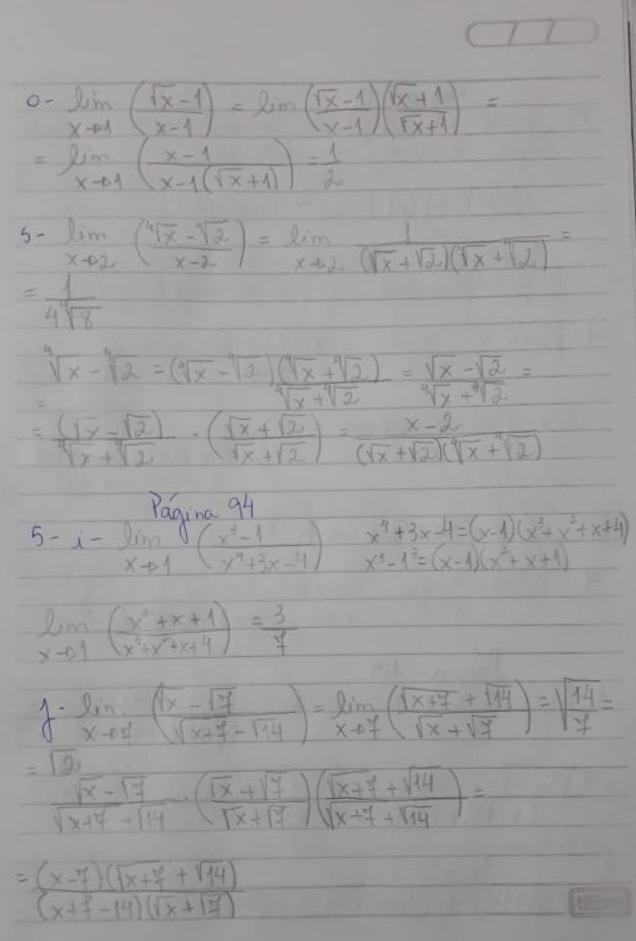 o- lim x→1 (√x - 1 / x - 1) = lim (√x - 1 / x - 1)(√x + 1 / √x + 1) =
= lim x→1 (x - 1 / x - 1(√x + 1)) = 1/2
s- lim x→2 (⁴√x - ⁴√2 / x - 2) = lim x→2 1 / (√x + √2)(⁴√x + ⁴√2) =
= 1 / 4⁴√8
⁴√x - ⁴√2 = (⁴√x - ⁴√2) (⁴√x + ⁴√2) / ⁴√x + ⁴√2 = √x - √2 / ⁴√x + ⁴√2 =
=
= (√x - √2) / ⁴√x + ⁴√2 · (√x + √2 / √x + √2) = x - 2 / (√x + √2)(⁴√x + ⁴√2)
Página 94
5- i- lim x→1 (x³ - 1 / x⁴ + 3x - 4) x⁴ + 3x - 4 = (x - 1)(x³ + x² + x + 4)
x³ - 1³ = (x - 1)(x² + x + 1)
lim x→1 (x² + x + 1 / x³ + x² + x + 4) = 3/7
j- lim x→7 (√x - √7 / √x+7 - √14) = lim x→7 (√x+7 + √14 / √x + √7) = √14/7 =
= √2
√x - √7 / √x+7 - √14 · (√x + √7 / √x + √7)(√x+7 + √14 / √x+7 + √14) =
= (x - 7)(√x+7 + √14) / (x + 7 - 14)(√x + √7)